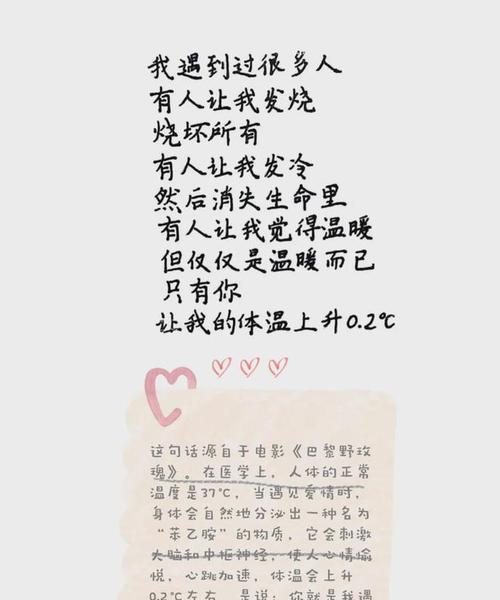 我遇到过很多人
有人让我发烧
烧坏所有
有人让我发冷
然后消失生命里
有人让我觉得温暖
但仅仅是温暖而已
只有你
让我的体温上升0.2℃
这句话源自于电影《巴黎野玫
瑰》。在医学上，人体的正常
温度是37℃，当遇见爱情时，
身体会自然地分泌出一种名为
“苯乙胺”的物质，它会刺激
大脑和中枢神经，使人心情愉
悦，心跳加速，体温会上升
0.2℃左右。是说：你就是我遇